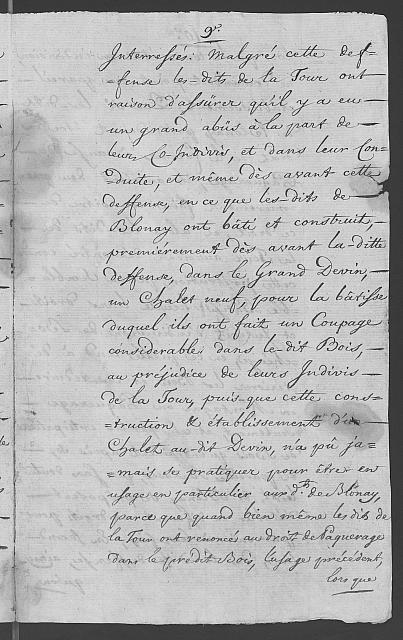 9.e
Interressés: Malgré cette def-
-fense les-dits de la Tour ont
raison d'assürer qu'il y a eu
un grand abüs à la part de
leurs Co-Indivis, et dans leur Con-
-duite, et même dès avant cette
deffense, en ce que les-dits de
Blonay ont bâti et construit,
premiérement dès avant la-ditte
deffense, dans le Grand Devin,
un Chalet neuf, pour la bâtisse
duquel ils ont fait un Coupage
considerable dans le-dit Bois,
au préjudice de leurs Indivis
de la Tour, puis-que cette cons-
-truction & établissement d'un
Chalet au-dit Devin, n'a pû ja-
-mais se pratiquer pour être en
usage en particulier aux d.ts de Blonay,
parce que quand bien même les dits de
la Tour ont renoncé au droit de Paquerage
dans le prédit Bois, l'usage précédent,
lors que